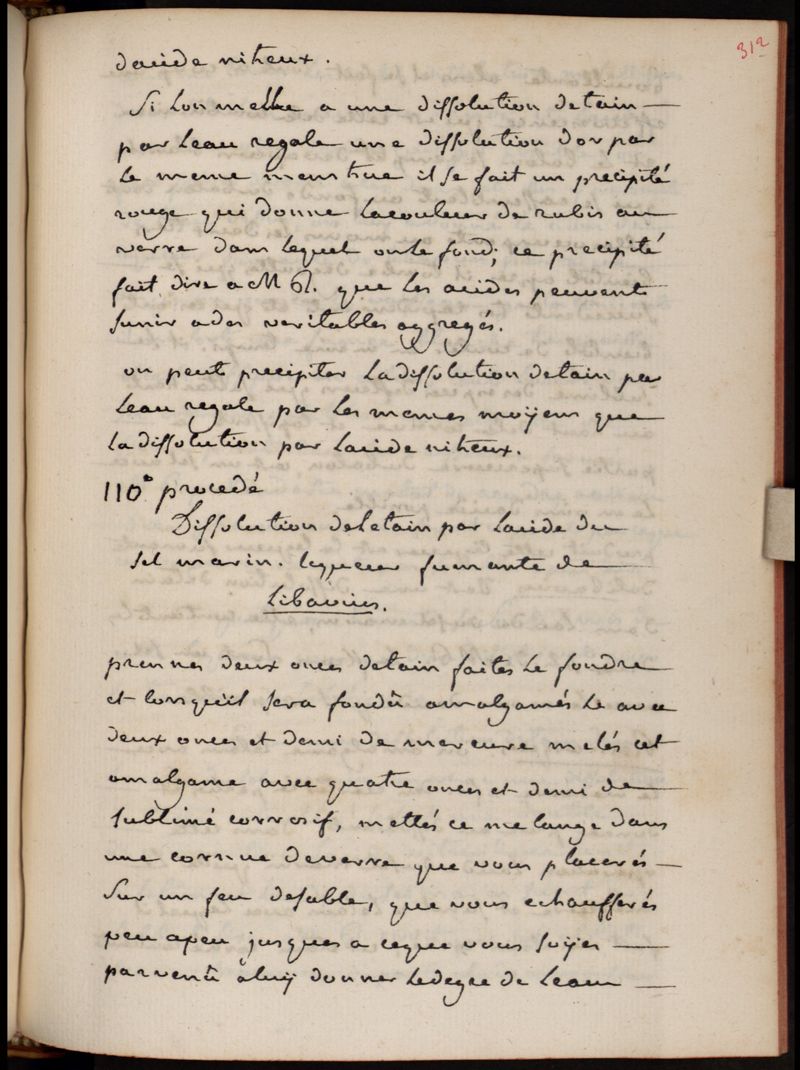 312
dacide nitreux.
Si lon melle a une dissolution detain
par leau regale une dissolution dor par
le meme menstrue il se fait un precipité
rouge qui donne lacouleur de rubis au
verre dans lequel onle fond; ce precipité
fait dire a M R. que les acides peuvent
sunir ades veritables aggregés.
on peut precipiter ladissolution detain par
leau regale par les memes moÿens que
la dissolution par lacide nitreux.
110e procedé
Dissolution deletain par lacide du
sel marin. liqueur fumante de
Libavius.
prennes deux onces detain faites le fondre
et lorsquil sera fondû amalgamés le avec
deux onces et demi de mercure melés cet
amalgame avec quatre onces et demi de
sublimé corrosif, mettés ce melange dans
une cornue deverre que vous placerés
sur un feu desable, que vous echaufferés
peu apeu jusques a ceque vous soÿes
parvenû aluÿ donner ledegre de leau